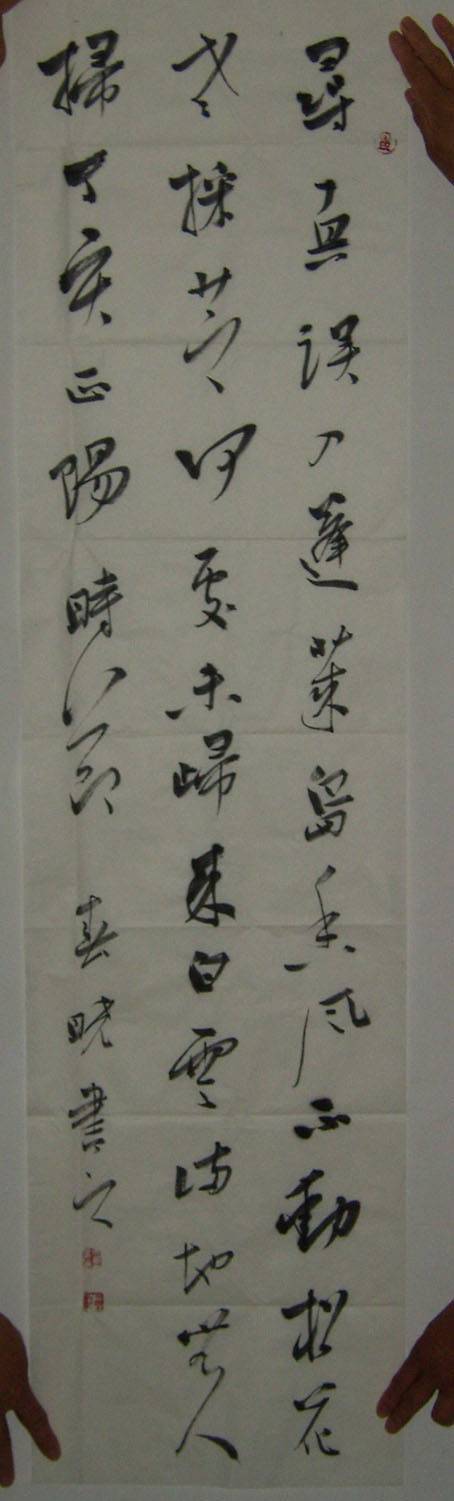 尋真誤入蓬萊島香風不動松花
老採芝何處未歸来白雲滿地無人
掃丁亥正陽時節 春曉書之